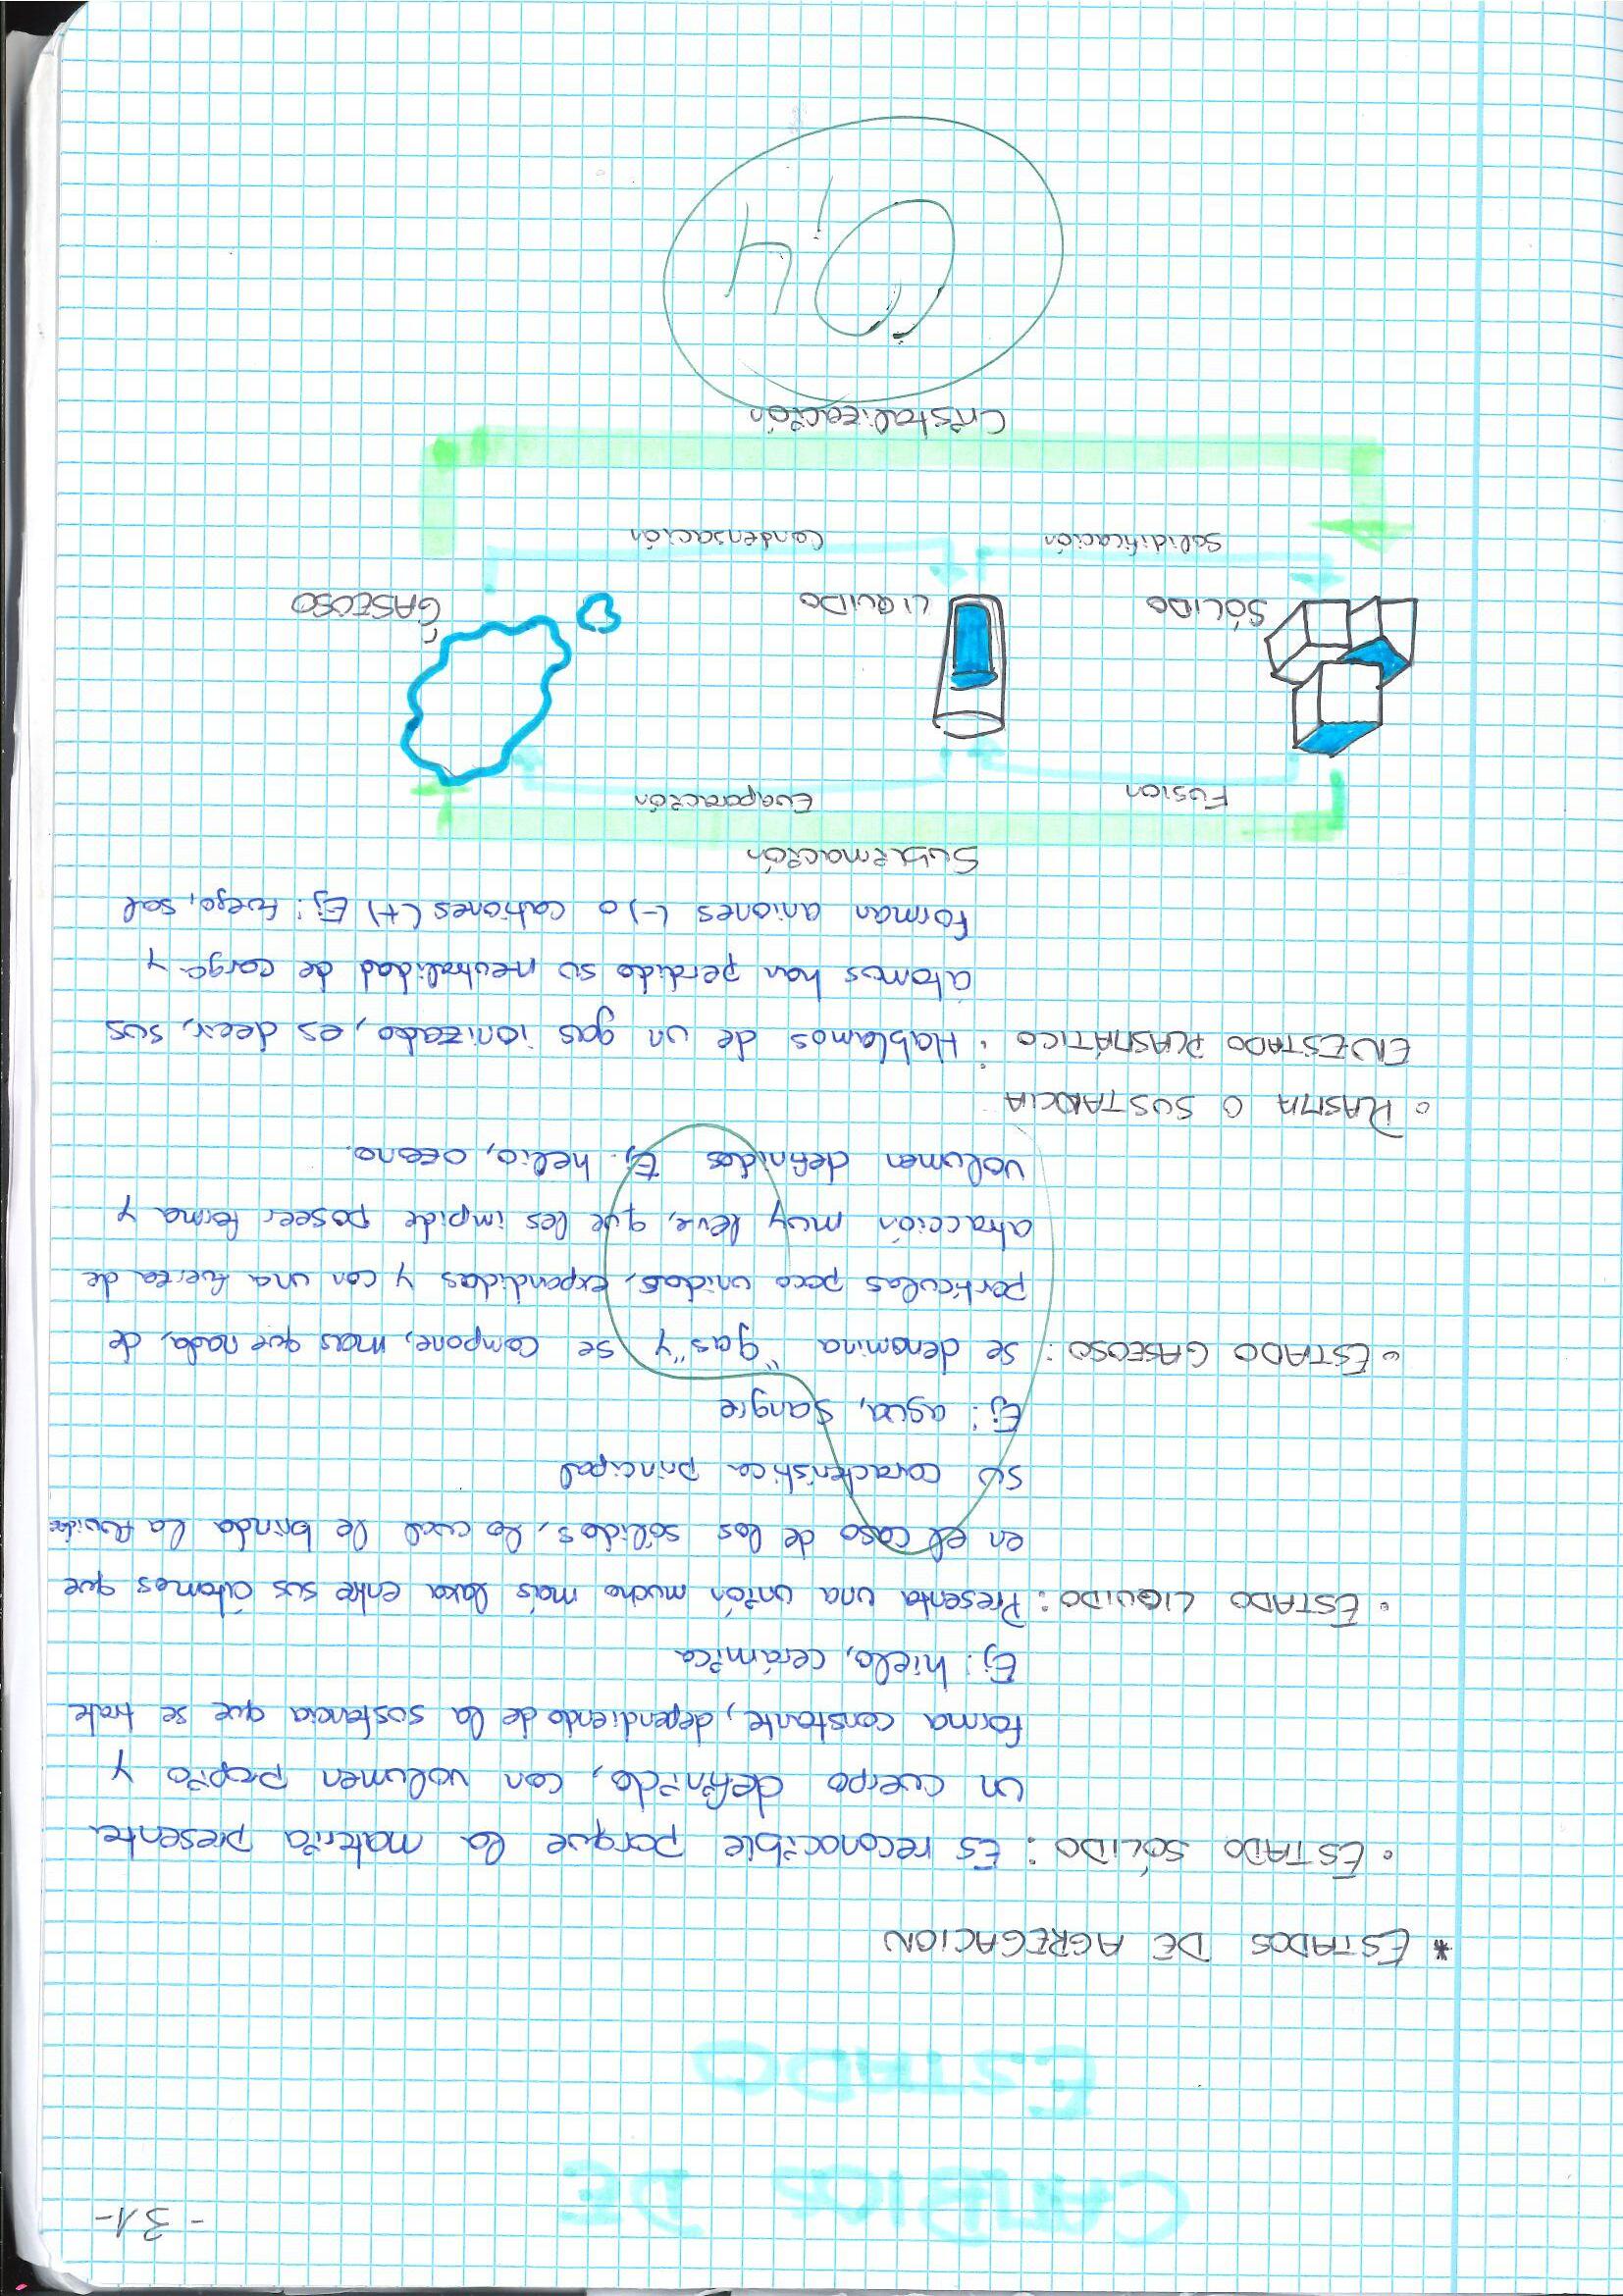 -31-
CAMBIOS DE
ESTADO
* ESTADOS DE AGREGACION
• ESTADO SÓLIDO: Es reconocible porque la materia presenta
un cuerpo definido, con volumen propio y
forma constante, dependiendo de la sustancia que se trate
Ej: hielo, cerámica
• ESTADO LIQUIDO: Presenta una unión mucho más laxa entre sus átomos que
en el caso de los sólidos, lo cual le brinda la fluidez
su característica principal
Ej: agua, sangre
• ESTADO GASEOSO: se denomina "gas" y se compone, mas que nada, de
partículas poco unidas, expandidas y con una fuerza de
atracción muy leve, que les impide poseer forma y
volumen definidos Ej. helio,
• PLASMA O SUSTANCIA
EN ESTADO PLASMÁTICO: Hablamos de un gas ionizado, es decir, sus
átomos han perdido su neutralidad de carga y
forman aniones (-) o cationes (+) Ej: fuego, sol
Sublimación
Fusion Evaporación
SÓLIDO LIQUIDO GASEOSO
Solidificación Condensación
Cristalización
0,4